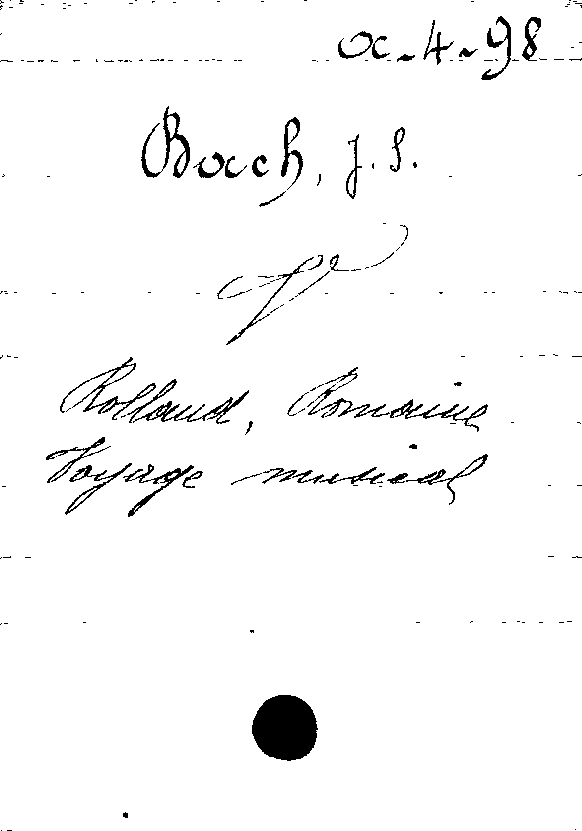 a-4-98
Bach, J. S.
V
Rolland, Romaine
Voyage musical